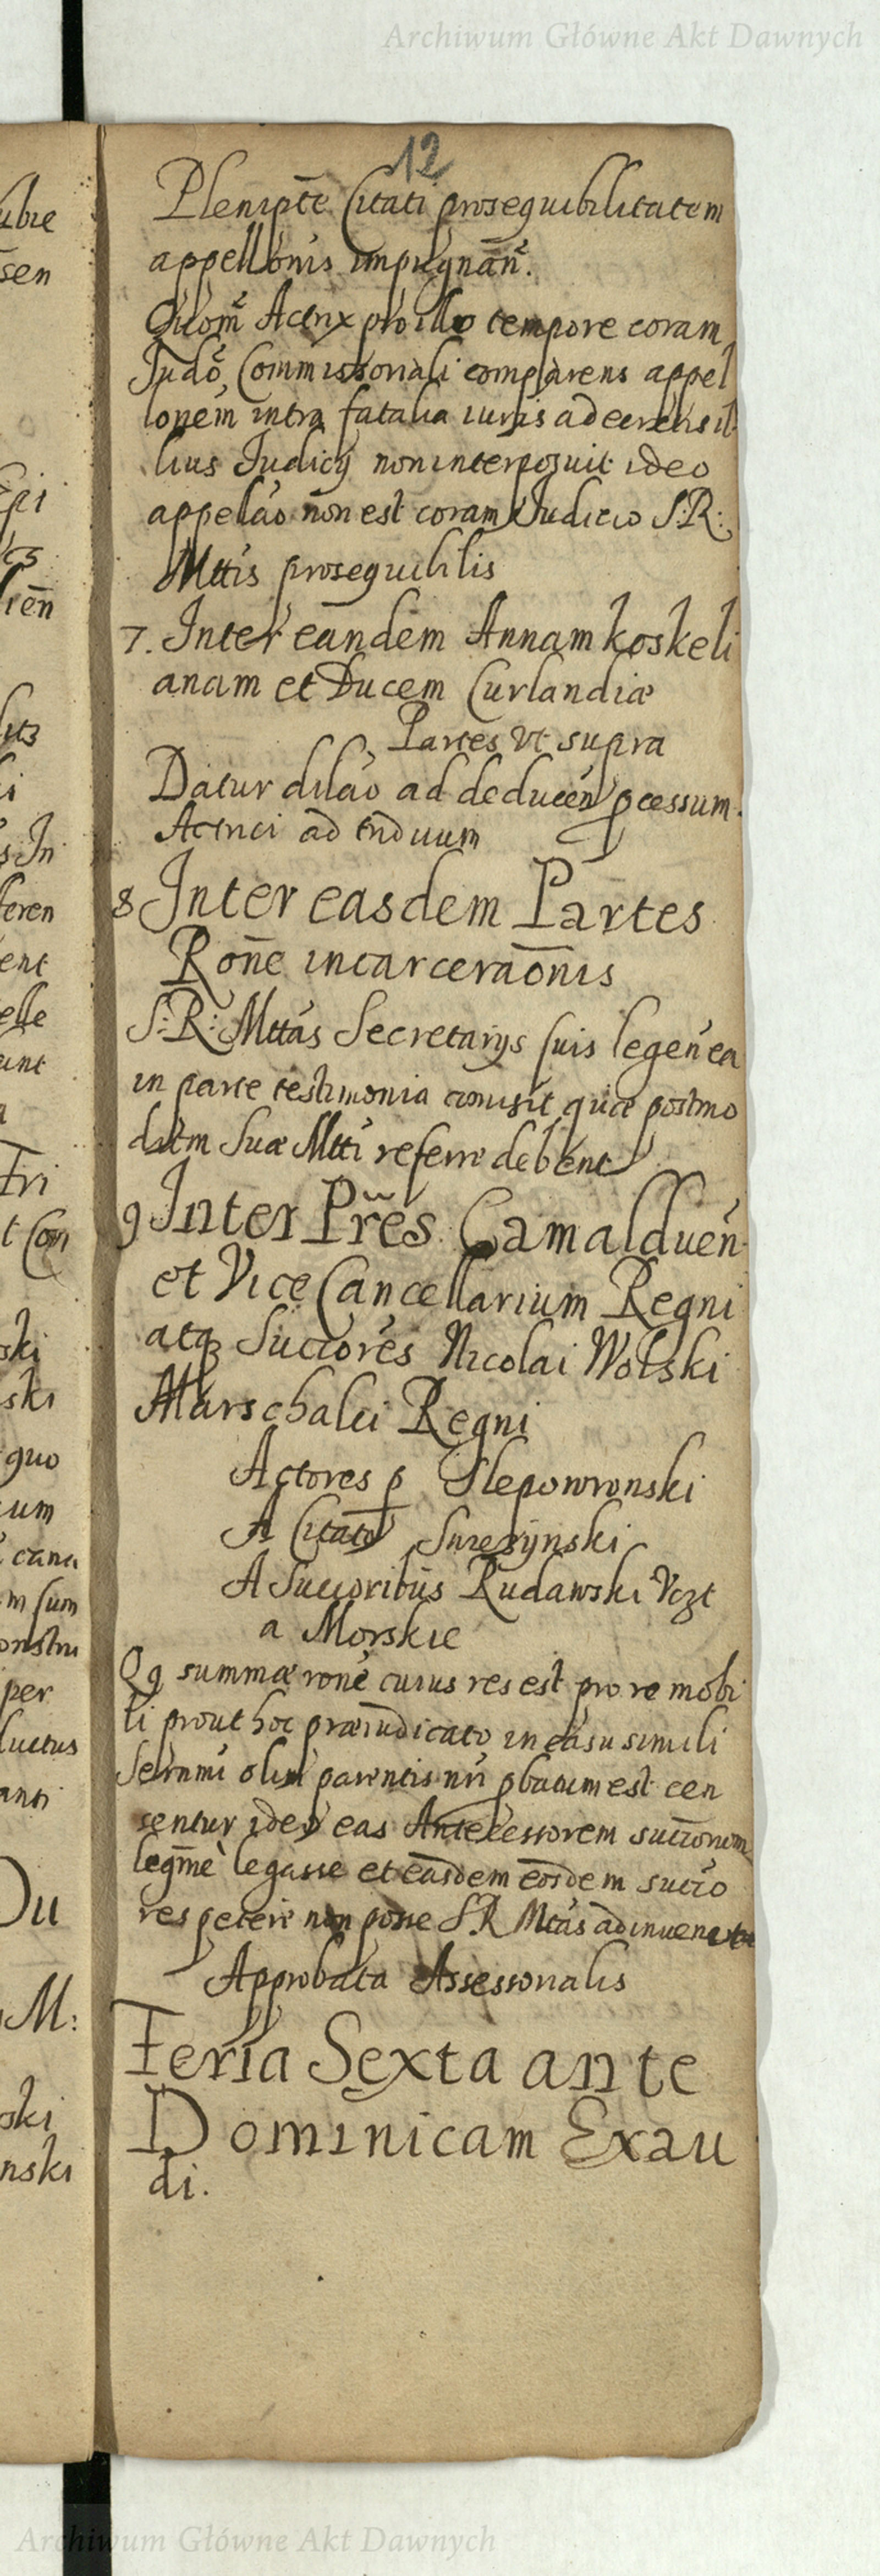 Archiwum Główne Akt Dawnych
12
Plenipte Citati prosequibilitatem
appellonis impugnan.
Quom Actrix pro illo tempore coram
Judo Commissoriali comparens appel
lonem intra fatalia iuris a decretis il
lius Judicij non interposuit ideo
appelao non est coram Judicio S: R:
Mttis prosequibilis
7. Inter eandem Annam Koskeli
anam et Ducem Curlandiæ
Partes vt supra
Datur dilao ad deducen pcessum.
Actrici ad triduum
8 Inter easdem Partes
Rone incarceraonis
S: R: Mttas Secretarijs suis legen ea
in parte testimonia comisit quæ postmo
dum Suæ Mtti referre debent
9 Inter Pres Camalduen
et Vice Cancellarium Regni
atq Succores Nicolai Wolski
Marschalci Regni
Actores p Slepowronski
A Citato Surezynski
A Succoribus Rudawski Vczt
a Morskie
Qq summæ rone cuius res est pro re mobi
li prout hoc præiudicato in casu simili
Sernmi olim parentis nri pbatum est cen
sentur ideo eas Antecessorem succorum
legme legasse et easdem eosdem succo
res petere non posse S. R Mtas adinuenit
Approbata Assessorialis
Feria Sexta ante
Dominicam Exau
di.
ubie
sen
Epi
lien
ski
ski
quo
um
m sum
per
luctus
Du
M:
ski
nski
Archiwum Główne Akt Dawnych